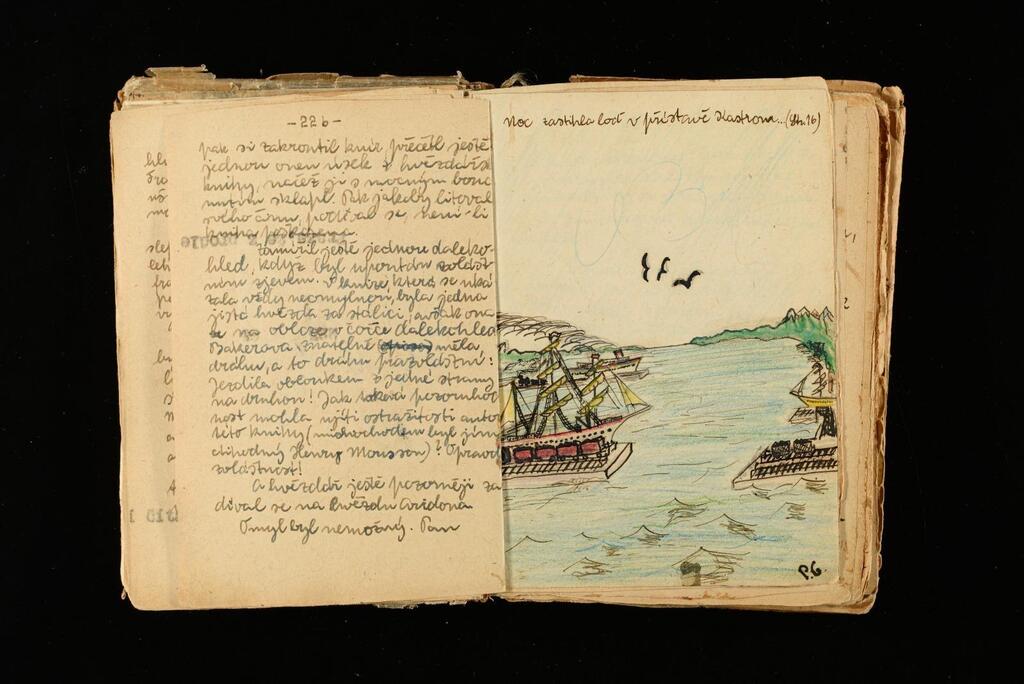 - 22b -
pak si zakroutil knír, přečetl ještě
jednou onen úsek z hvězdářské
knihy, načež ji s mocným bouc
nutím sklapl. Pak jakoby litoval
svého činu, podíval se, není-li
kniha poškozena.
Zamířil ještě jednou daleko-
hled, když byl upoután zvlášt
ním zjevem. V knize, která se uká
zala vždy neomylnou, byla jedna
jistá hvězda za stálici, avšak ona
se na obloze v čočce dalekohledu
Bakerova znatelně měla
dráhu, a to dráhu prazvláštní:
Jezdila obloukem z jedné strany
na druhou! Jak taková pozoruhod
nost mohla ujíti ostražitosti autora
této knihy (mimochodem byl jím
ctihodný Henry Mousson)? Opravdu
zvláštnost!
A hvězdář ještě pozorněji za
díval se na hvězdu Aridona
Omyl byl nemožný. Pan
Noc zastihla loď v přístavě Kastrom... (Str. 16)
P.G.